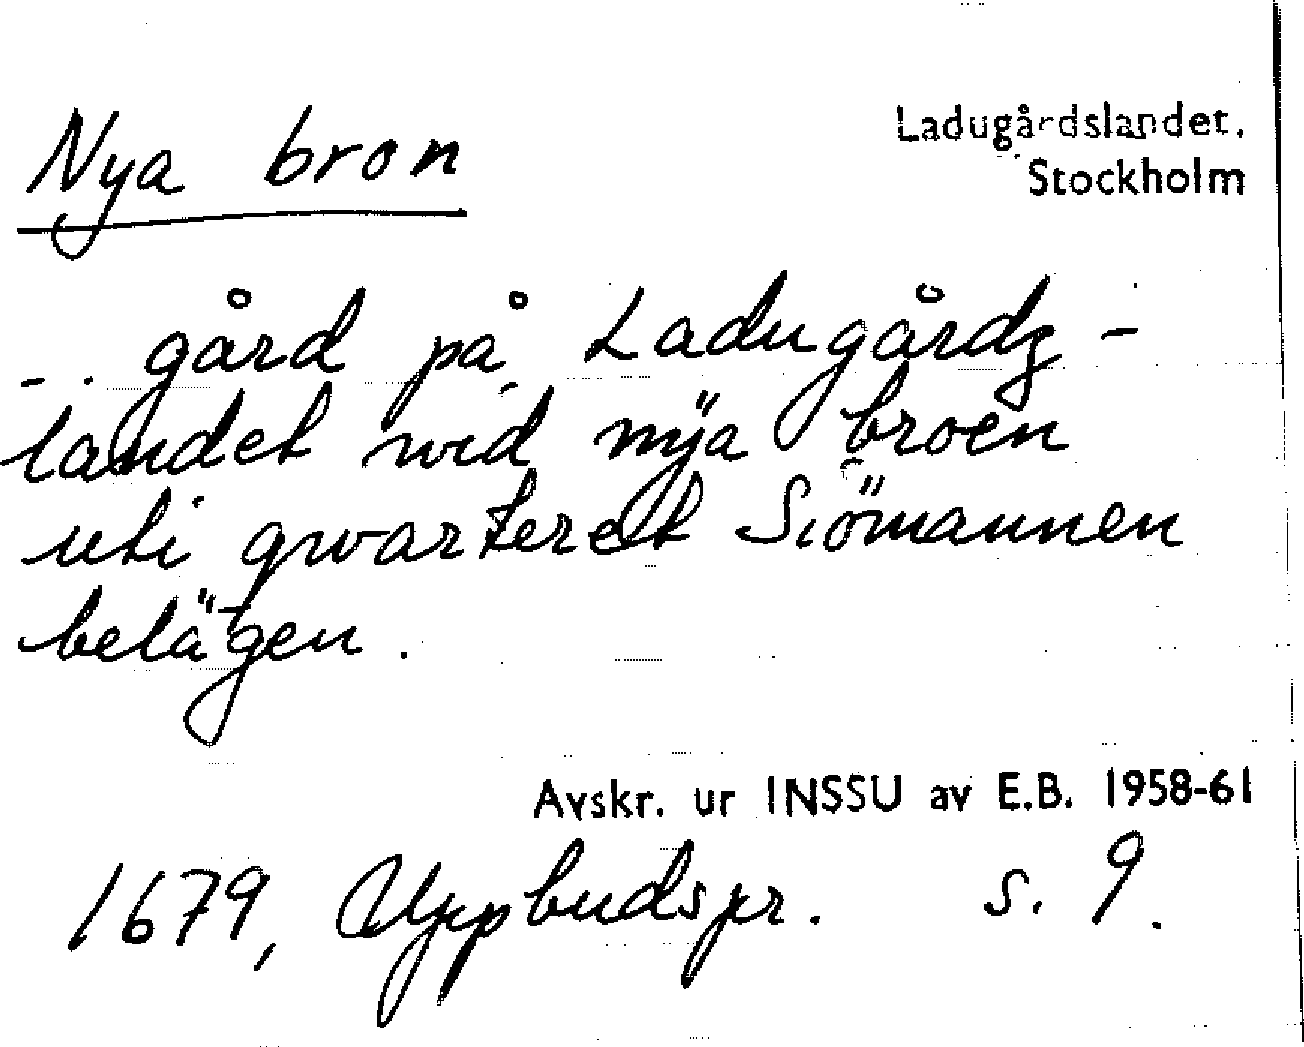 Nya bron
Ladugårdslandet.
Stockholm
... gård på Ladugårdz-
landet wid nÿa broen
uti qwarteret Siömannen
belägen.
Avskr. ur INSSU av E.B. 1958-61
1679, Uppbudspr. s. 9.